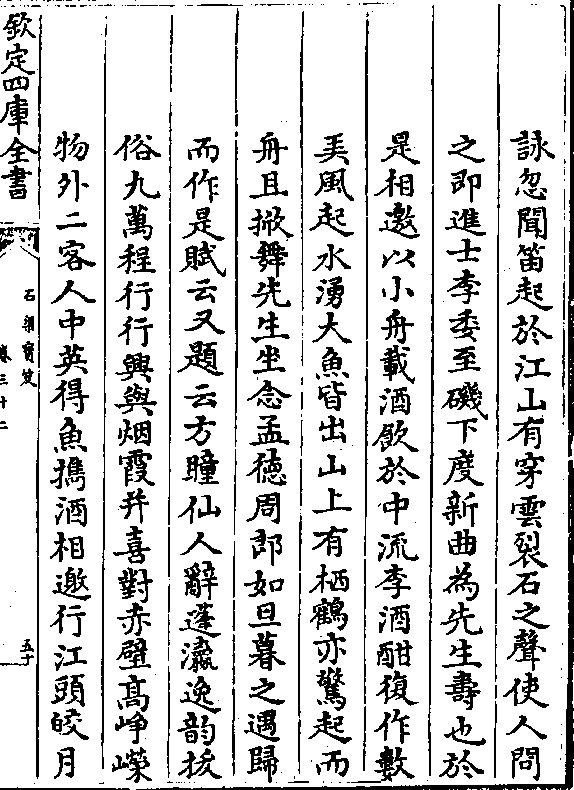 詠忽聞笛起於江山有穿雲裂石之聲使人問
之即進士李委至磯下度新曲為先生壽也於
是相邀以小舟載酒飲於中流李酒酣復作數
美風起水湧大魚皆出山上有栖鶴亦驚起而
舟且掀舞先生坐念孟徳周郎如旦暮之遇歸
而作是賦云又題云方瞳仙人辭蓬瀛逸韵拔
俗九萬程行行興與烟霞并喜對赤壁髙峥嶸
物外二客人中英得魚擕酒相邀行江頭皎月
欽定四庫全書
石渠寳笈
卷三十二
五十